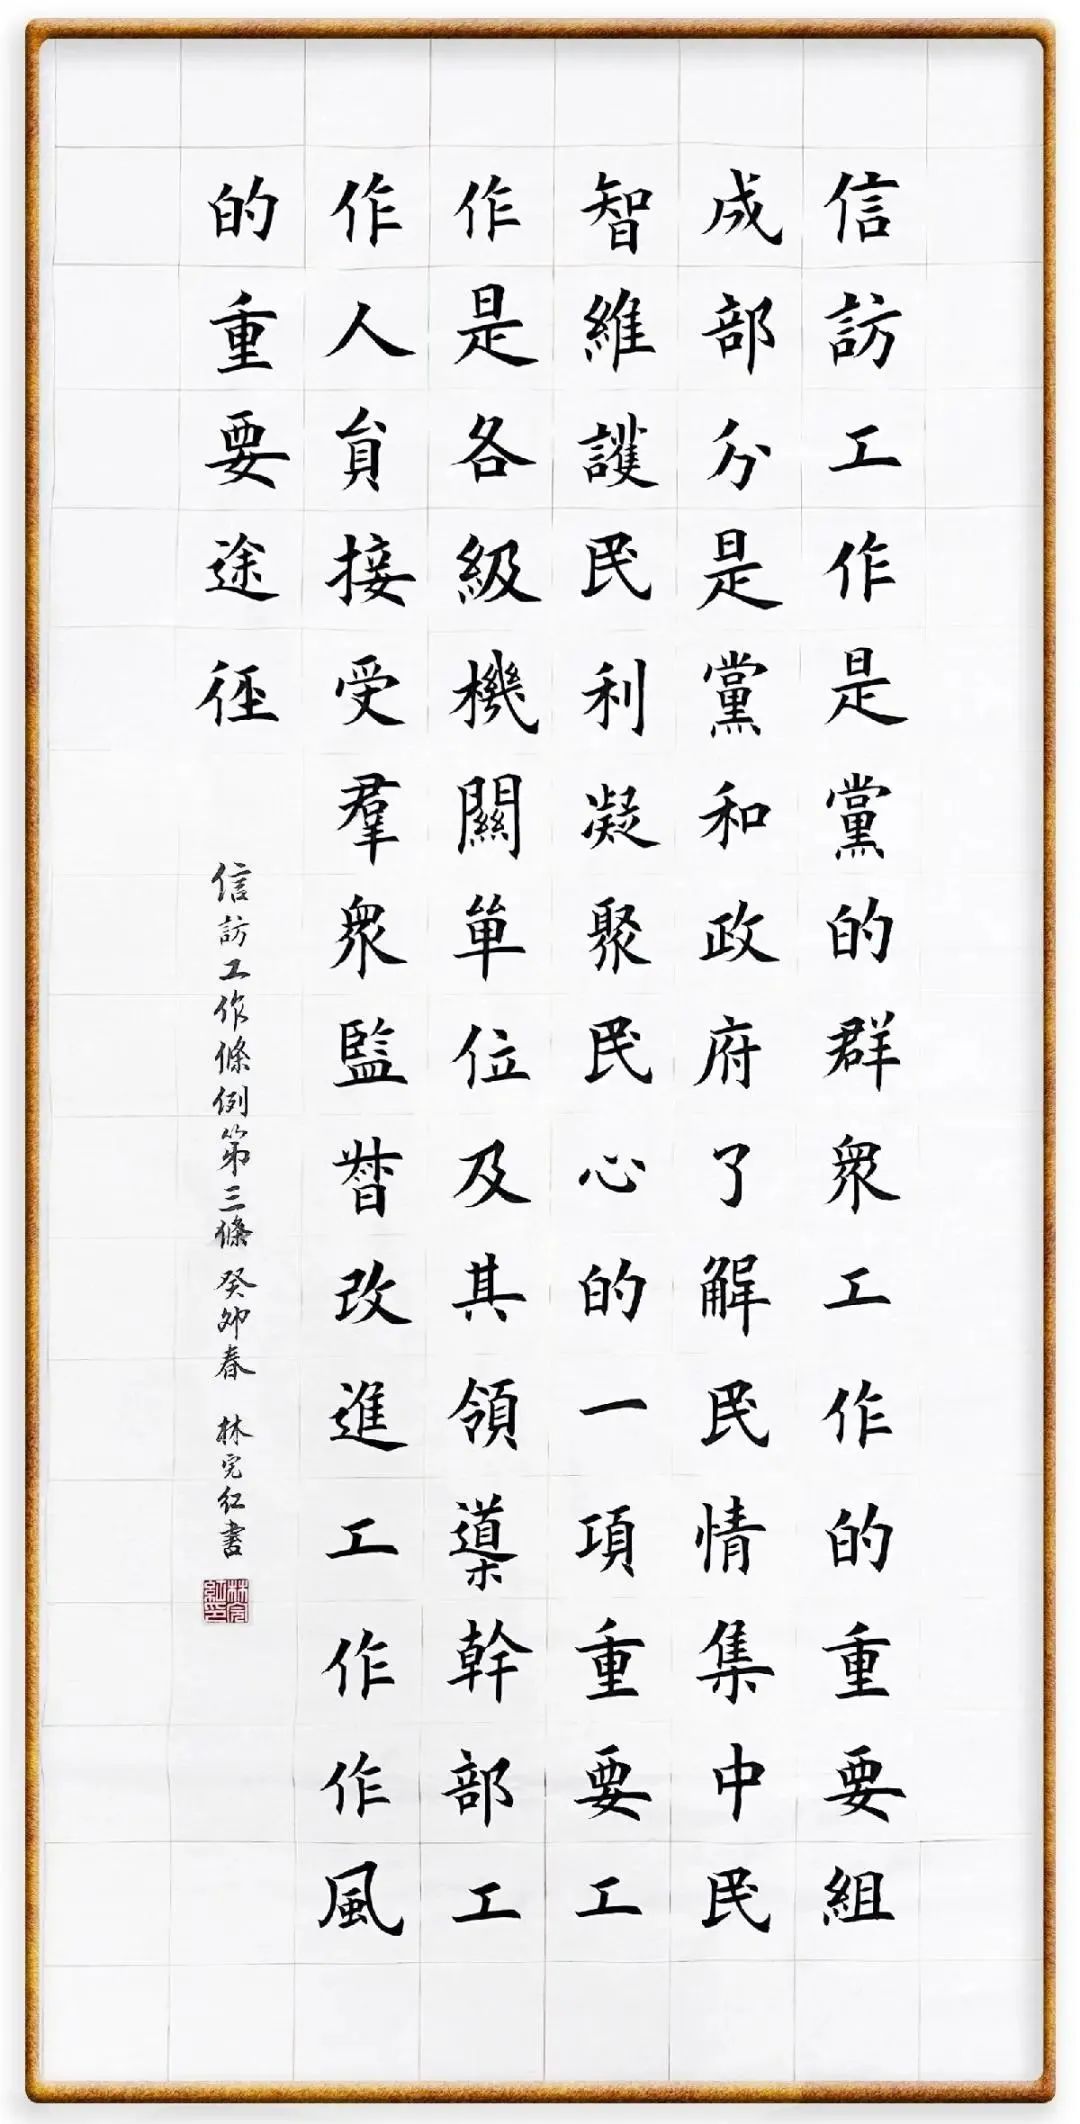 信訪工作是黨的群衆工作的重要組
成部分是黨和政府了解民情集中民
智維護民利凝聚民心的一項重要工
作是各級機關單位及其領導幹部工
作人員接受羣衆監督改進工作作風
的重要途徑
信訪工作條例第三條 癸卯春 林完紅書